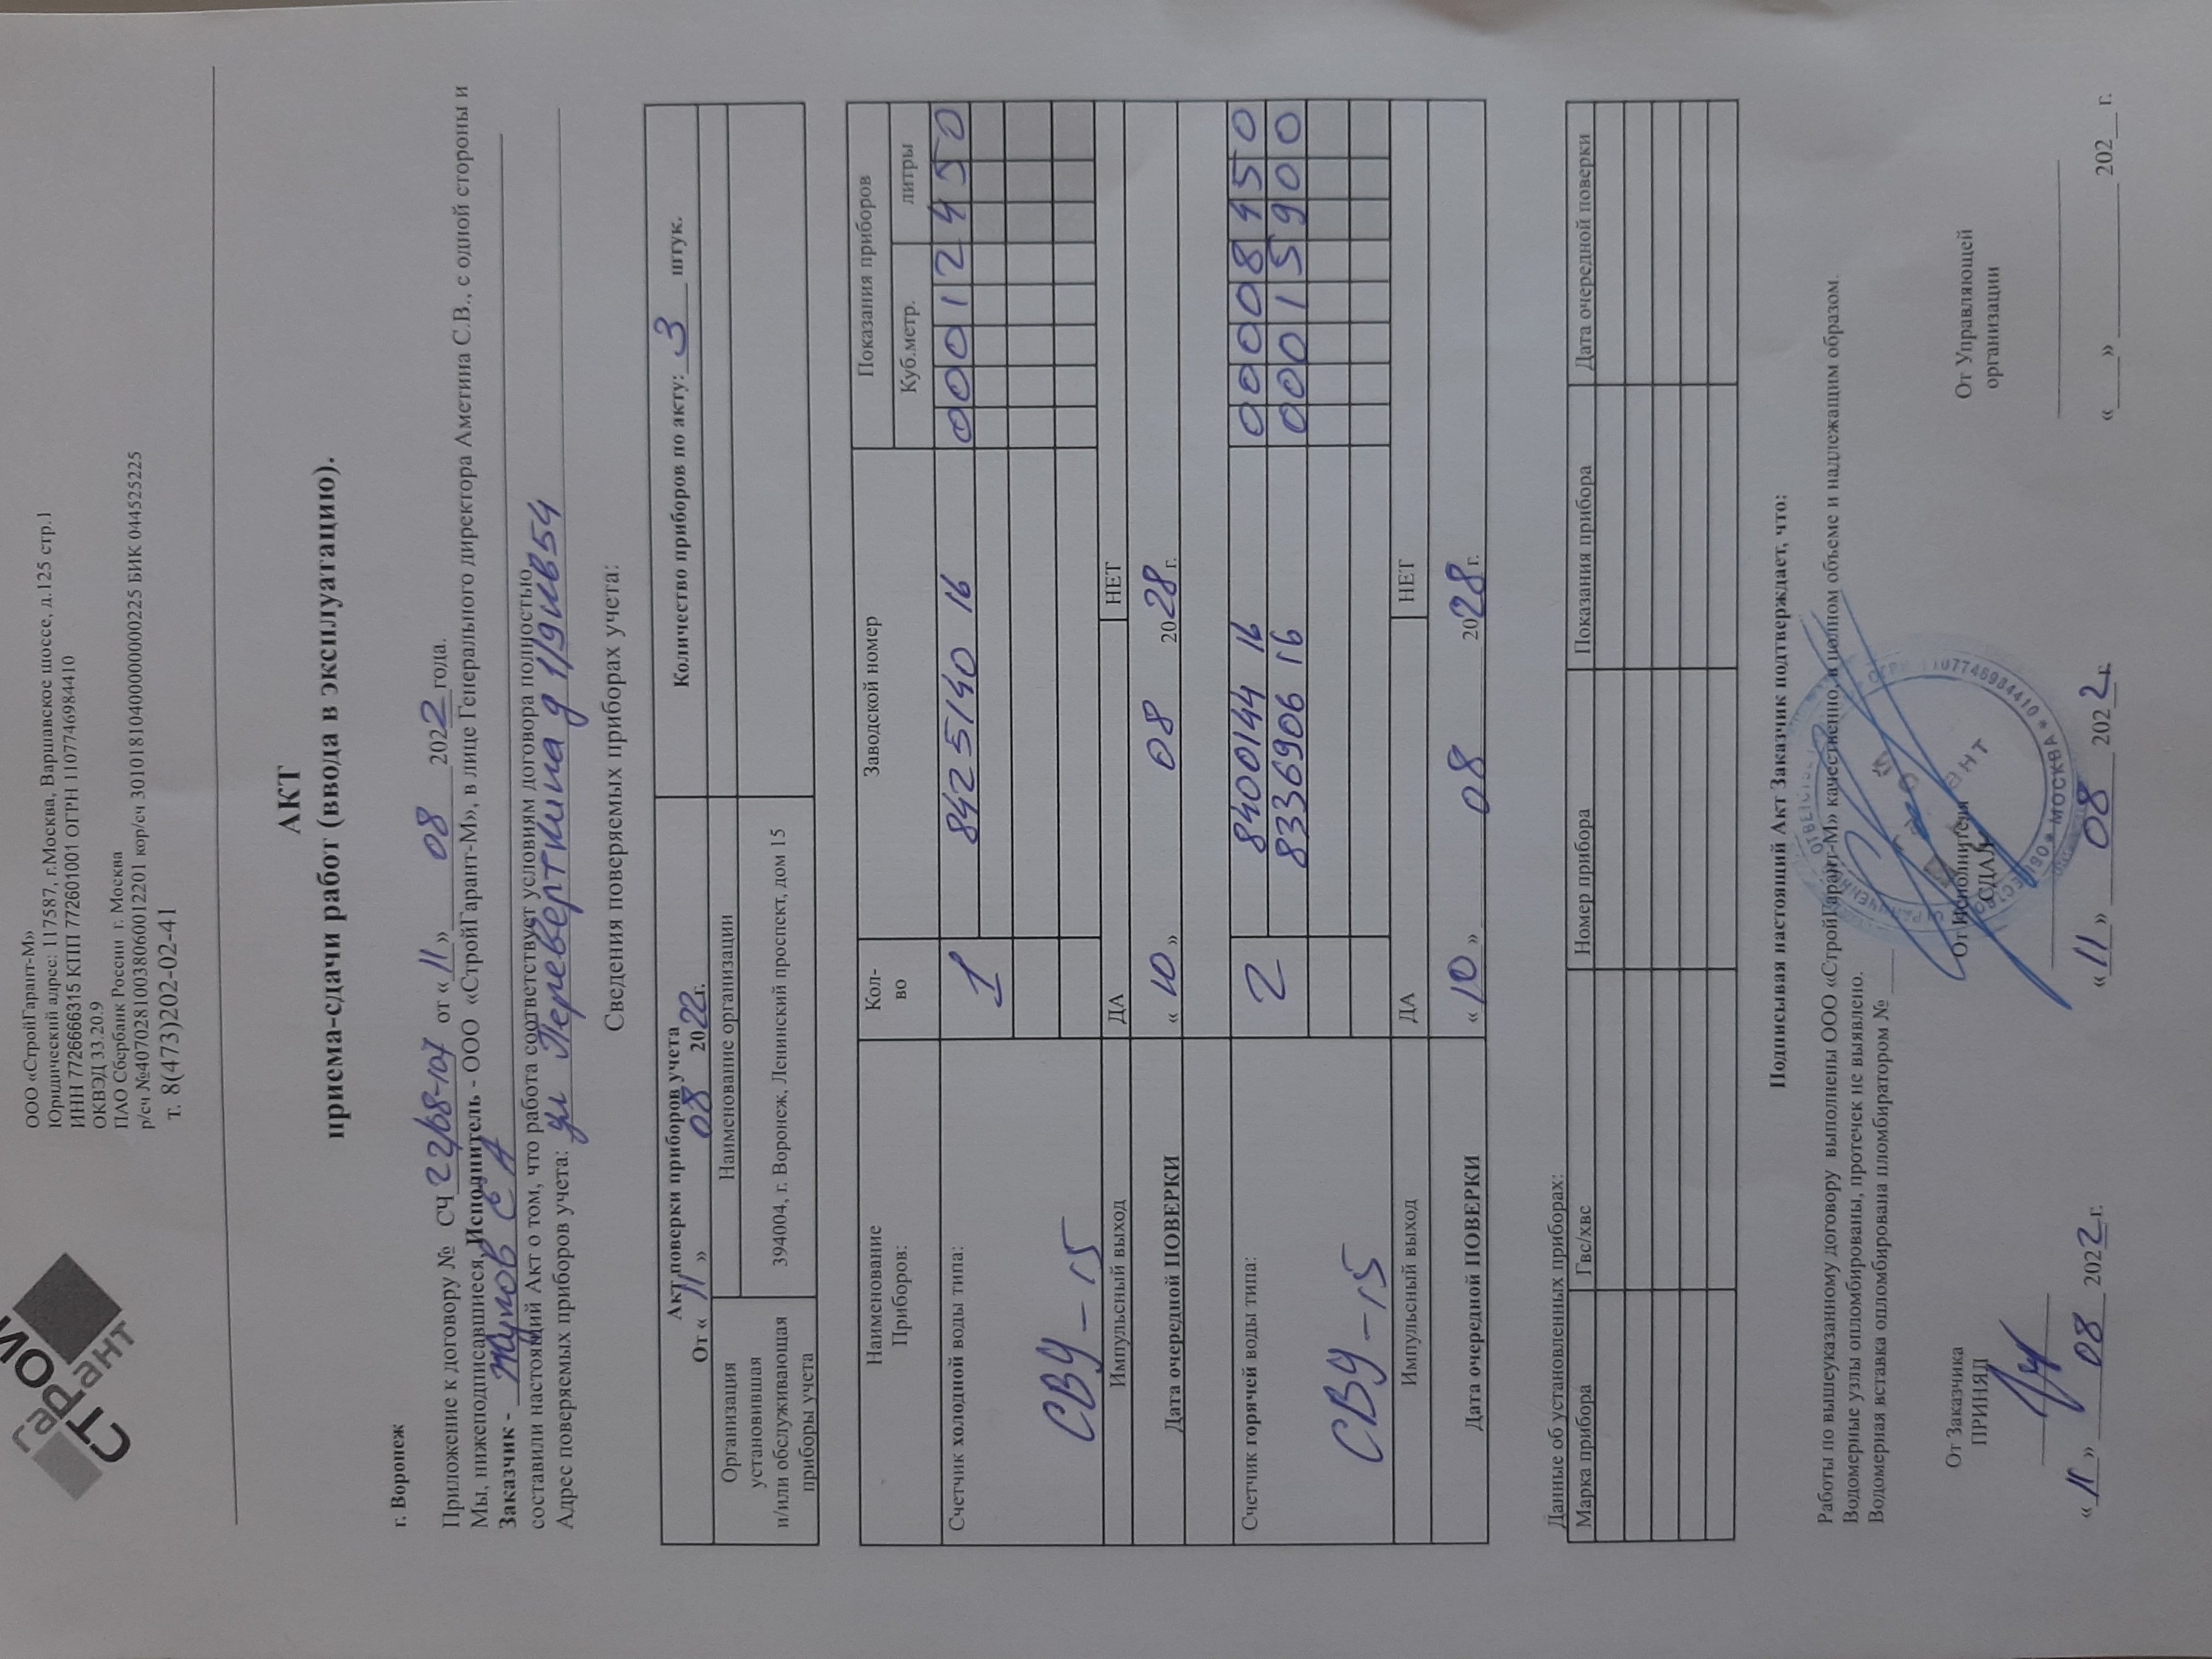 СТРОЙ
гарант
ООО «СтройГарант-М»
Юридический адрес: 117587, г.Москва, Варшавское шоссе, д.125 стр.1
ИНН 7726666315 КПП 772601001 ОГРН 1107746984410
ОКВЭД 33.20.9
ПАО Сбербанк России г. Москва
р/сч №40702810038060012201 кор/сч 30101810400000000225 БИК 044525225
т. 8(473)202-02-41
АКТ
приема-сдачи работ (ввода в эксплуатацию).
г. Воронеж
Приложение к договору № СЧ 22/08-107 от « 11 » 08 2022 года.
Мы, нижеподписавшиеся, Исполнитель - ООО «СтройГарант-М», в лице Генерального директора Аметина С.В., с одной стороны и
Заказчик - Жупов С А
составили настоящий Акт о том, что работа соответствует условиям договора полностью
Адрес поверяемых приборов учета: ул Переверткина д 1/9 кв 54
Сведения поверяемых приборах учета:
Акт поверки приборов учета
От « 11 » 08 2022 г.
Количество приборов по акту: 3 штук.
Организация установившая и/или обслуживающая приборы учета
Наименование организации
394004, г. Воронеж, Ленинский проспект, дом 15
Наименование Приборов:
Кол-во
Заводской номер
Показания приборов
Куб.метр.
литры
Счетчик холодной воды типа:
СВУ-15
1
8425140 16
00012450
Импульсный выход
ДА
НЕТ
Дата очередной ПОВЕРКИ
« 10 » 08 2028 г.
Счетчик горячей воды типа:
СВУ-15
2
8400144 16
00008450
8336906 16
00015900
Импульсный выход
ДА
НЕТ
Дата очередной ПОВЕРКИ
« 10 » 08 2028 г.
Данные об установленных приборах:
Марка прибора
Гвс/хвс
Номер прибора
Показания прибора
Дата очередной поверки
Подписывая настоящий Акт Заказчик подтверждает, что:
Работы по вышеуказанному договору выполнены ООО «СтройГарант-М» качественно, в полном объеме и надлежащим образом.
Водомерные узлы опломбированы, протечек не выявлено.
Водомерная вставка опломбирована пломбиратором №
От Заказчика
ПРИНЯЛ
От Исполнителя
СДАЛ
От Управляющей
организации
« 11 » 08 2022 г.
« 11 » 08 2022 г.
« » 202 г.
МОСКВА
1107746984410